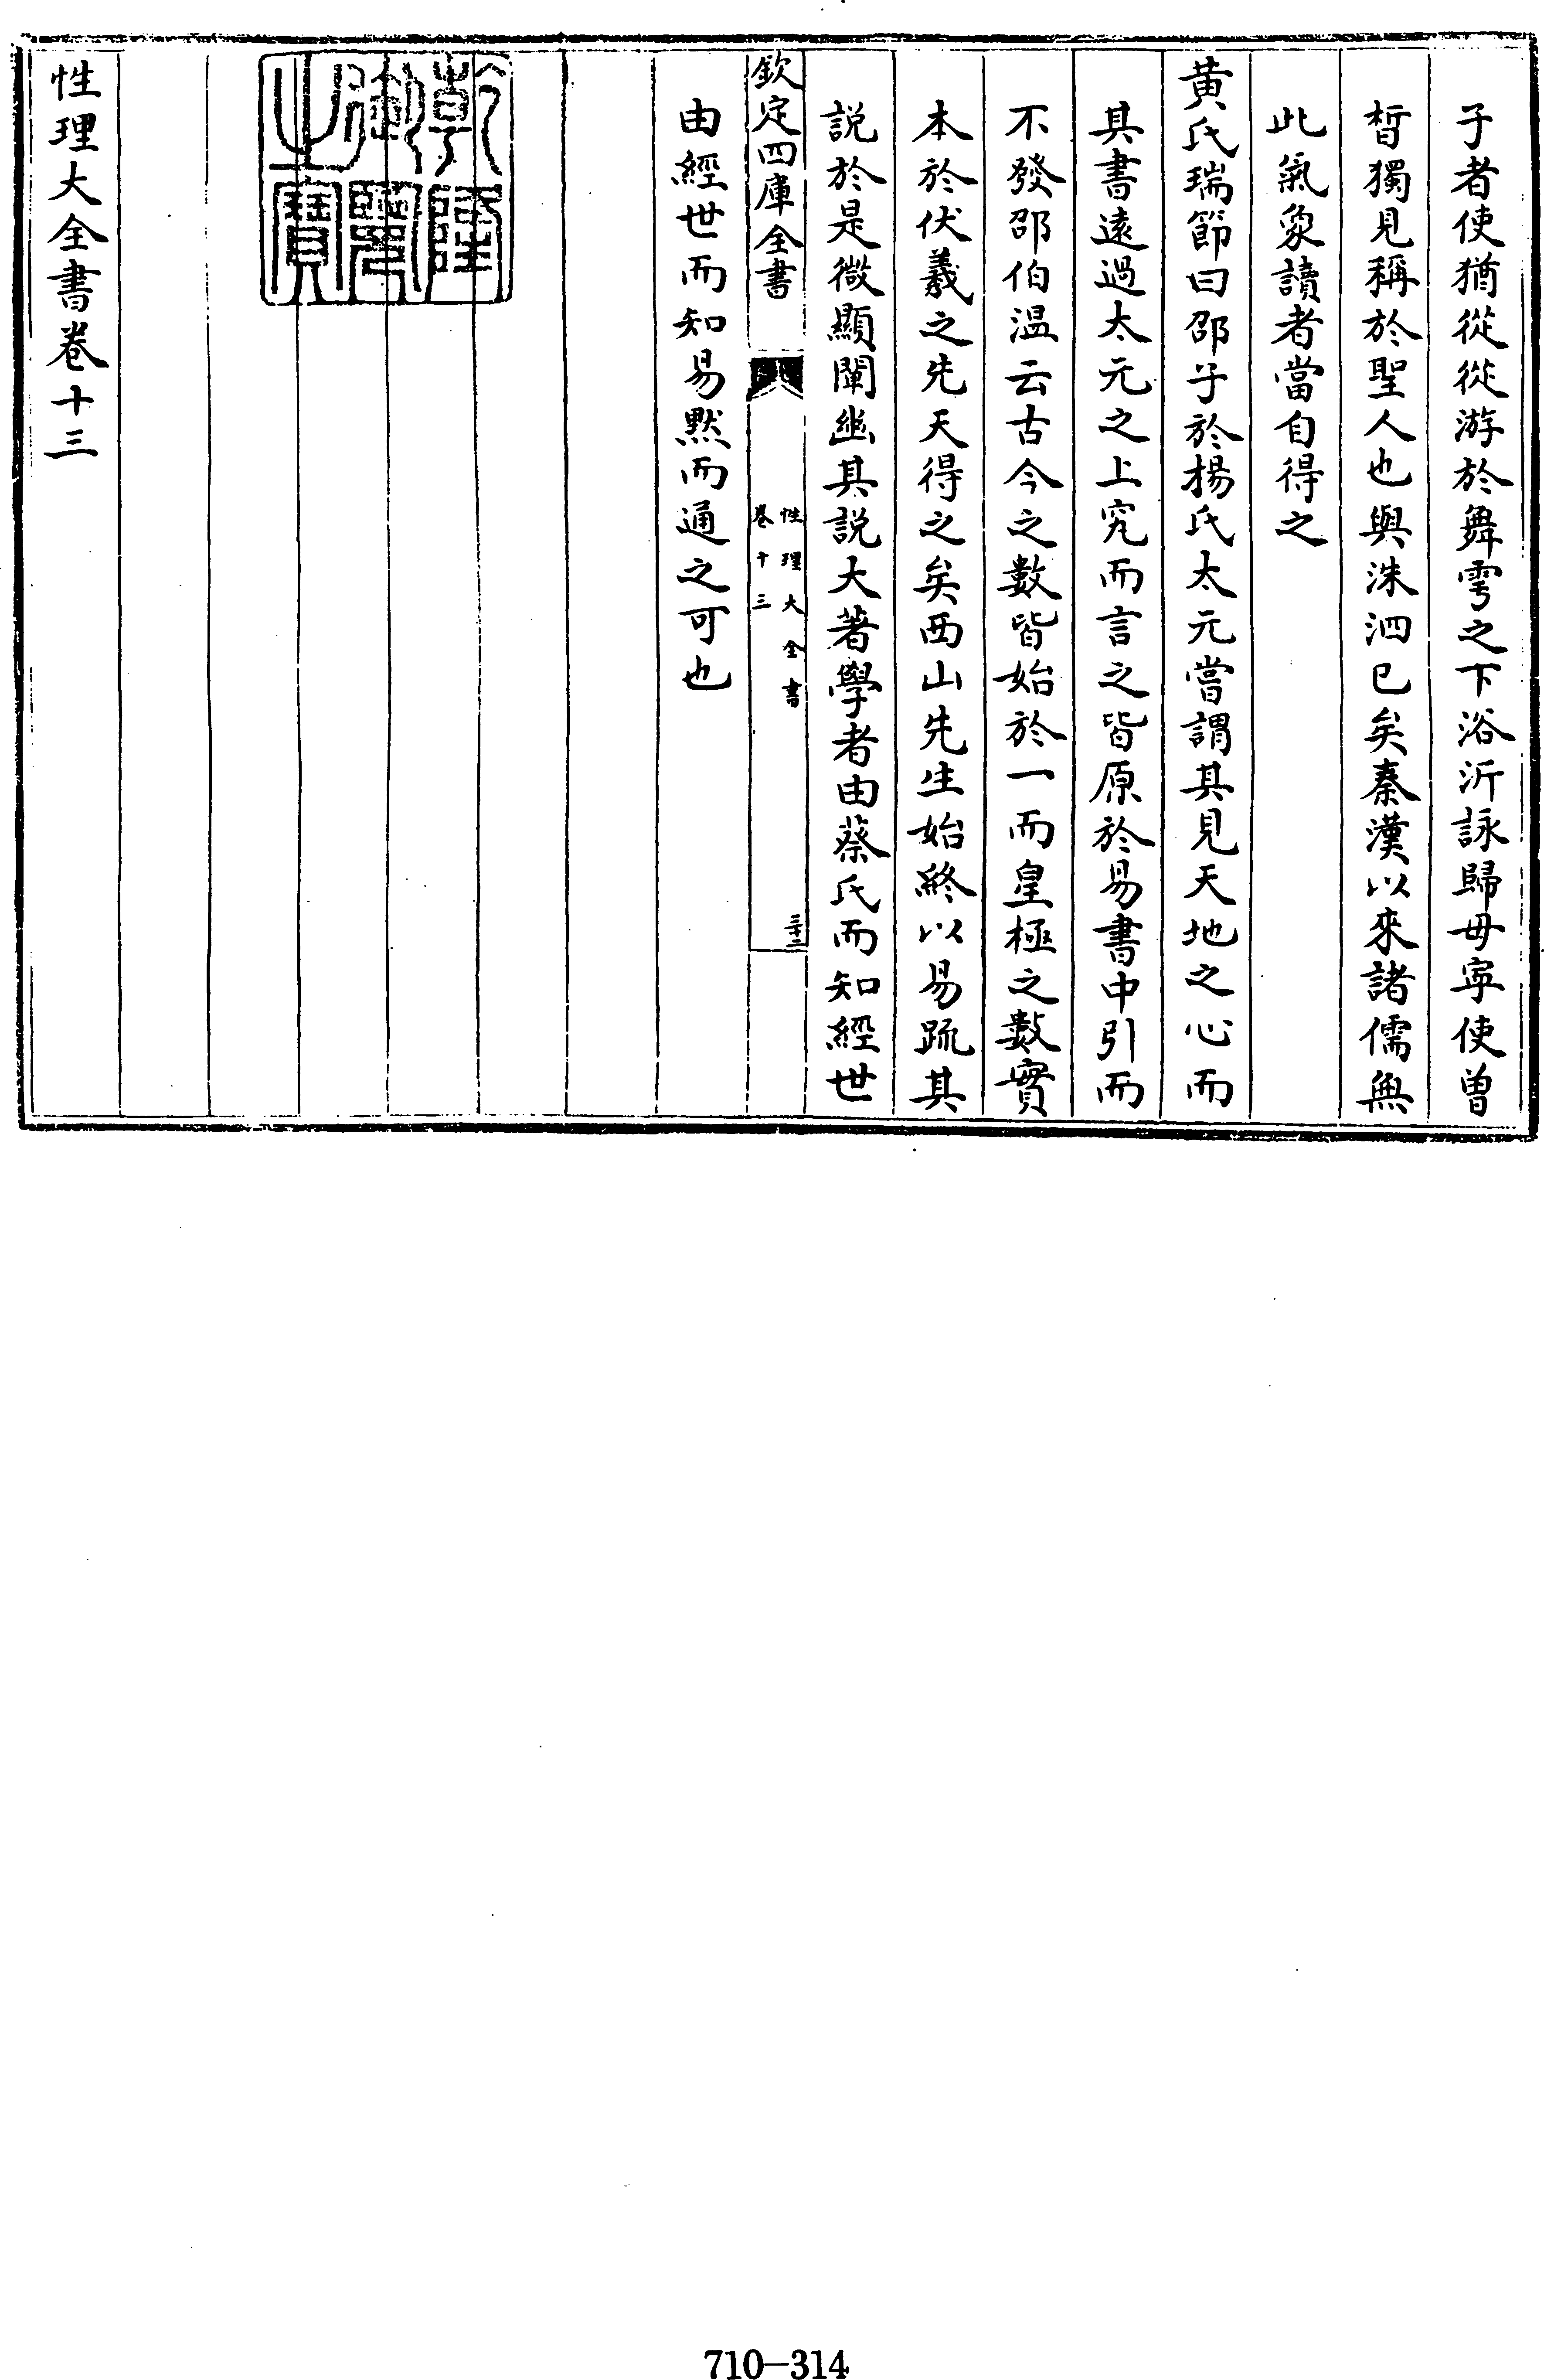 子者使猶從從游於舞雩之下浴沂詠歸毋寧使曾
晳獨見稱於聖人也與洙泗已矣秦漢以來諸儒無
此氣象讀者當自得之
黃氏瑞節曰邵子於揚氏太元嘗謂其見天地之心而
其書遠過太元之上究而言之皆原於易書中引而
不發邵伯温云古今之數皆始於一而皇極之數實
本於伏羲之先天得之矣西山先生始終以易疏其
說於是微顯闡幽其說大著學者由蔡氏而知經世
欽定四庫全書
性理大全書
卷十三
三十二
由經世而知易默而通之可也
乾隆御覽之寶
性理大全書卷十三
710-314